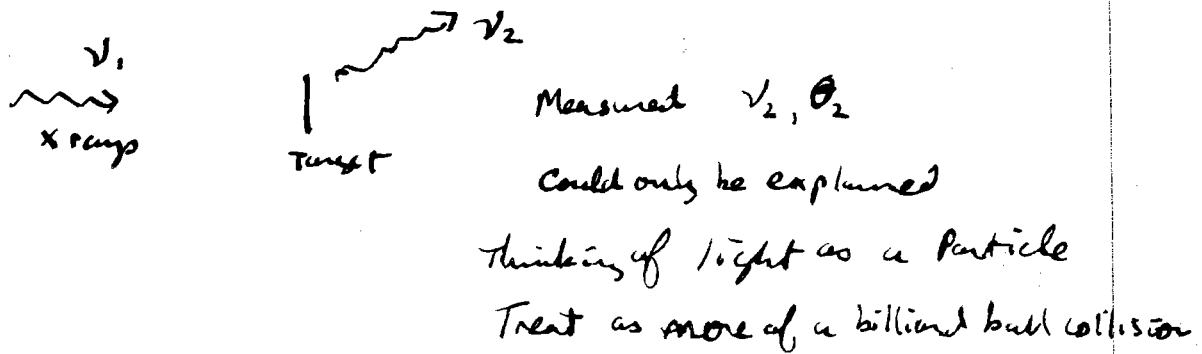 ν₂
ν₁
X rays
Target
Measured ν₂, θ₂
Could only be explained
thinking of light as a Particle
Treat as more of a billiard ball collision